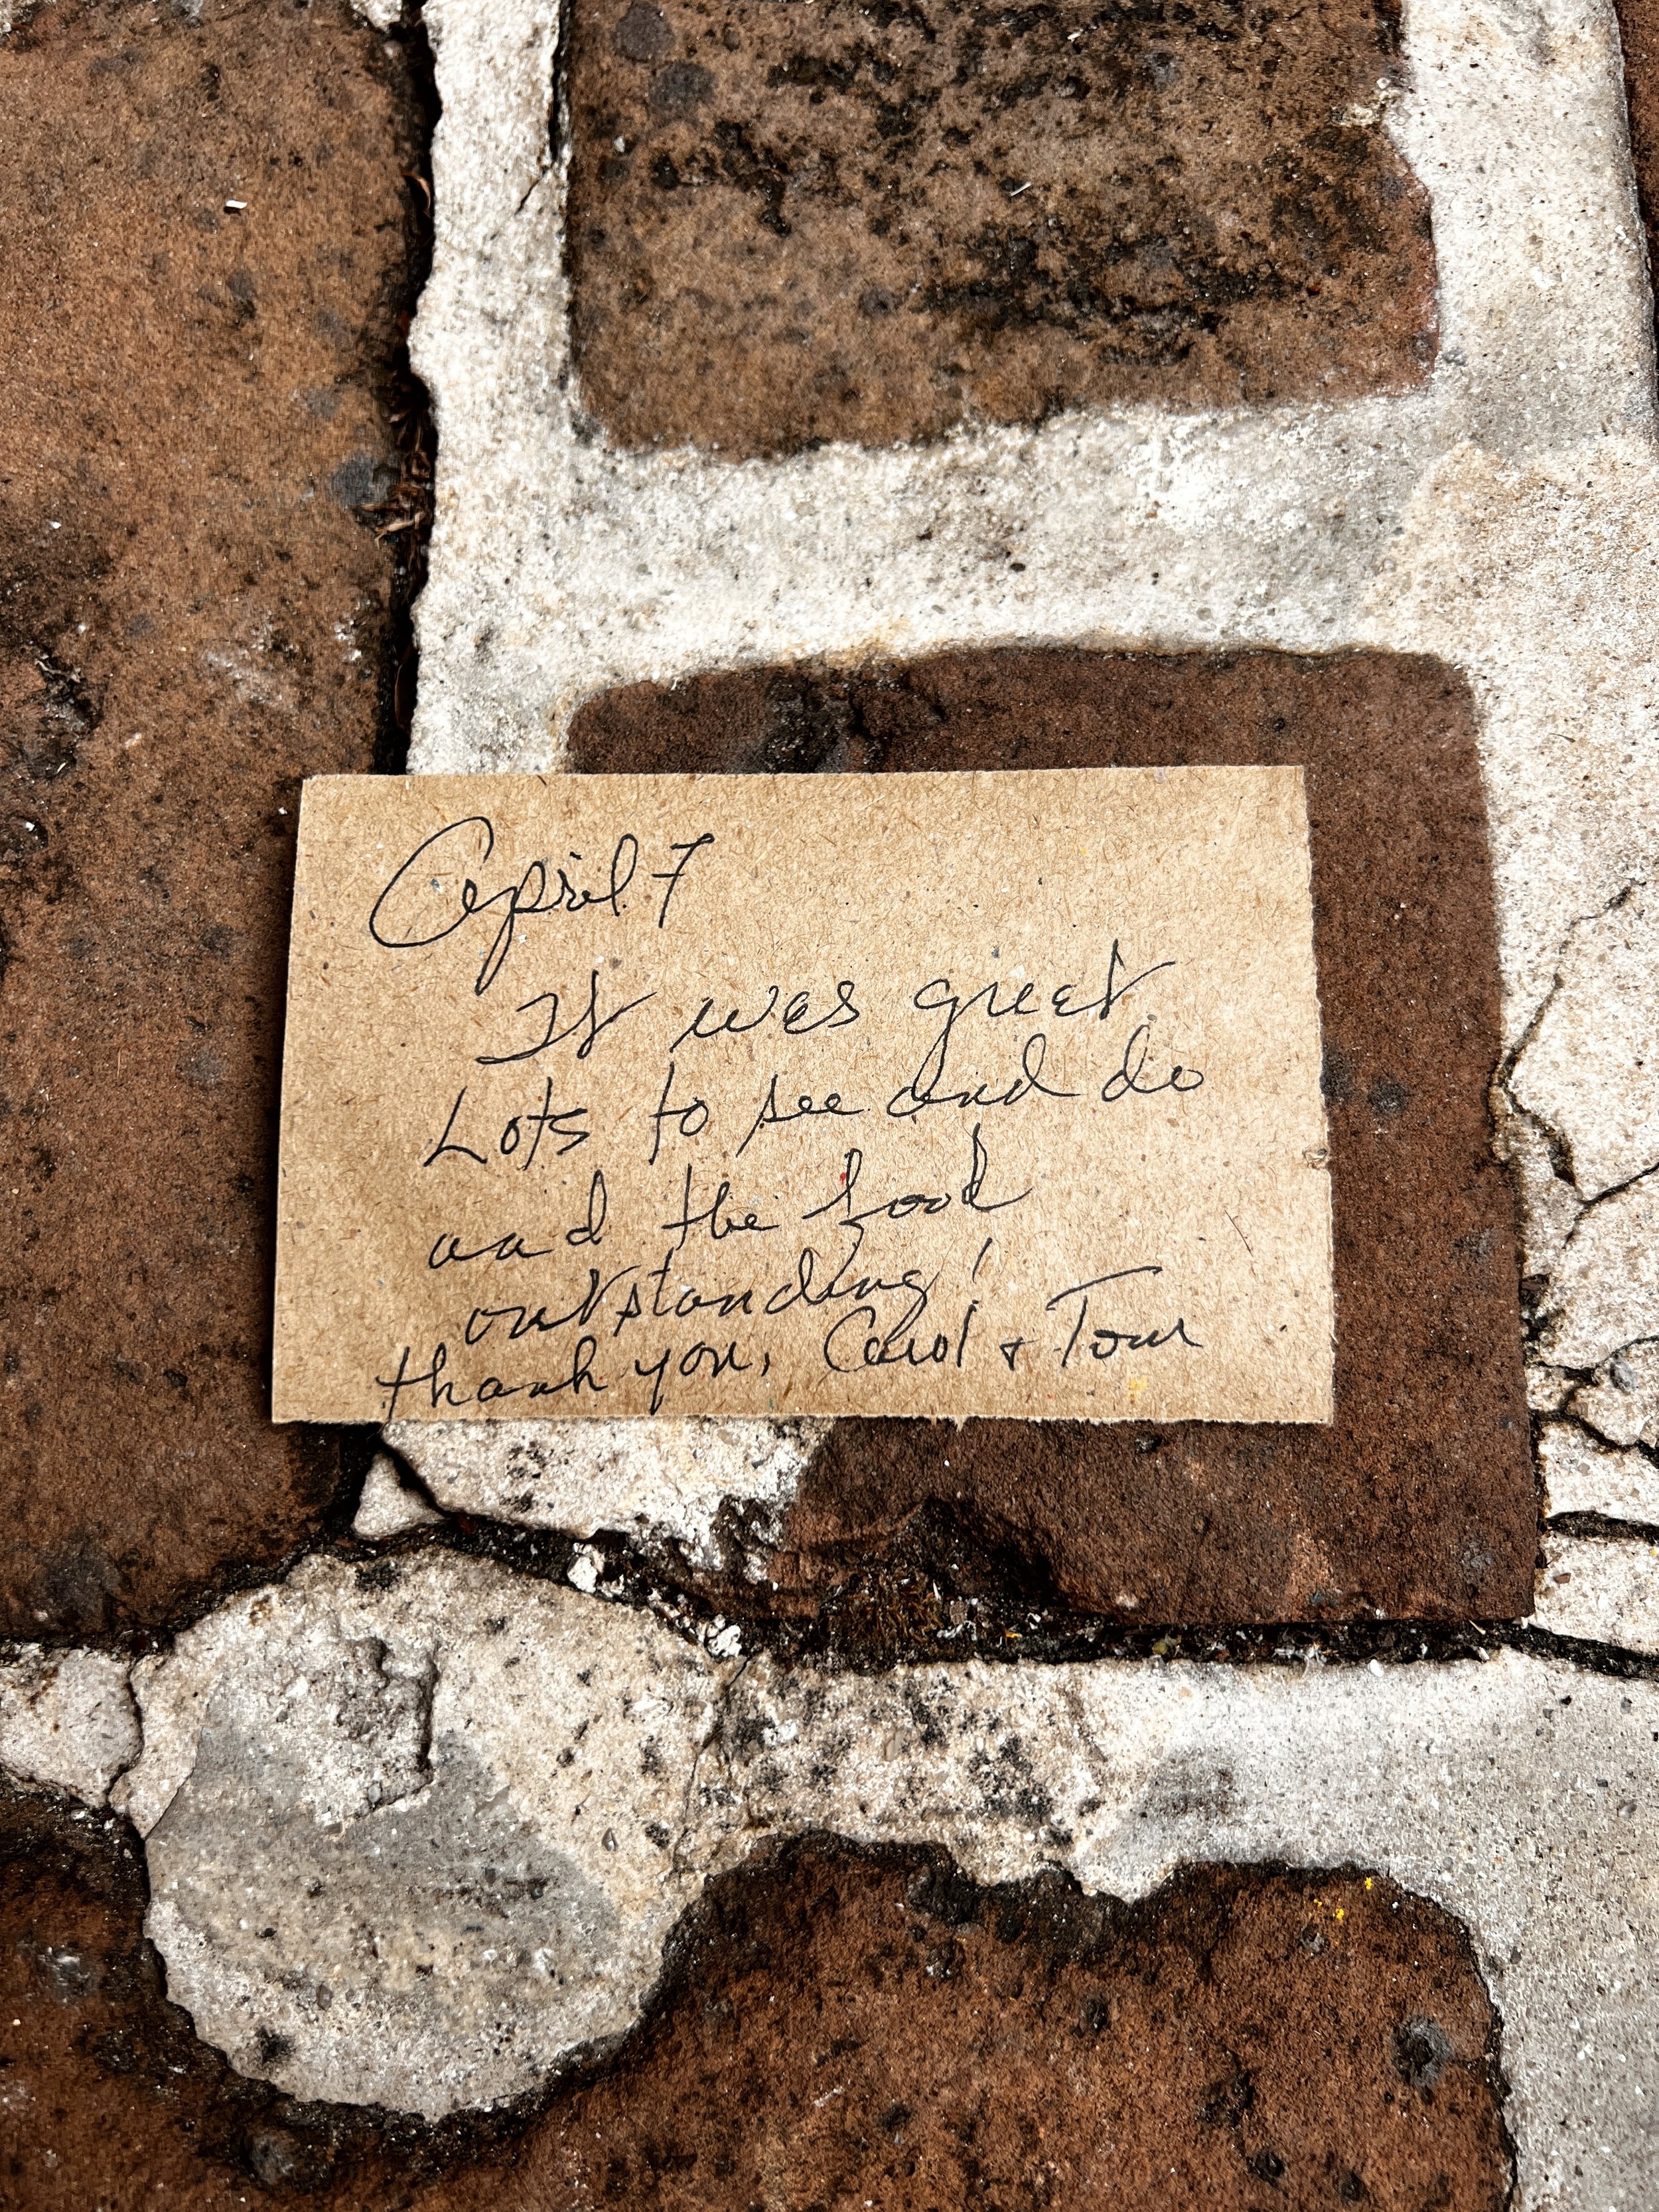 April 7
It was great
Lots to see and do
and the food
outstanding!
thank you, Carol + Tom